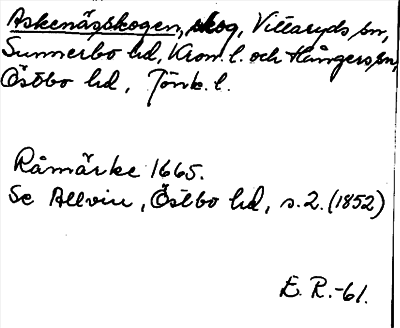 Askenässkogen, skog, Vittaryds sn,
Sunnerbo hd, Kron. l. och Hångers sn,
Östbo hd, Jönk. l.
Råmärke 1665.
Se Allvin, Östbo hd, s. 2. (1852)
E. R. -61.